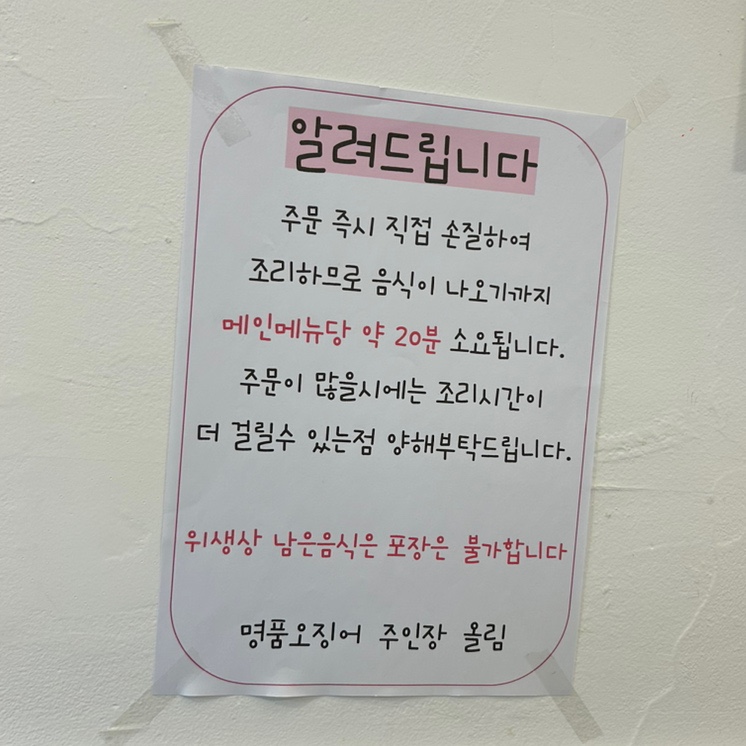 알려드립니다
주문 즉시 직접 손질하여
조리하므로 음식이 나오기까지
메인메뉴당 약 20분 소요됩니다.
주문이 많을시에는 조리시간이
더 걸릴수 있는점 양해부탁드립니다.
위생상 남은음식은 포장은 불가합니다
명품오징어 주인장 올림